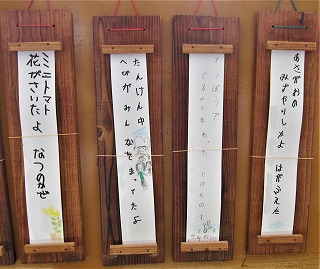 あさがおの
みずやりしたよ はがふえた
つぼうで
ぐるんとまわった
たんけん中
へびが みんなをまってたよ
ミニトマト
花がさいたよ なつのかぜ